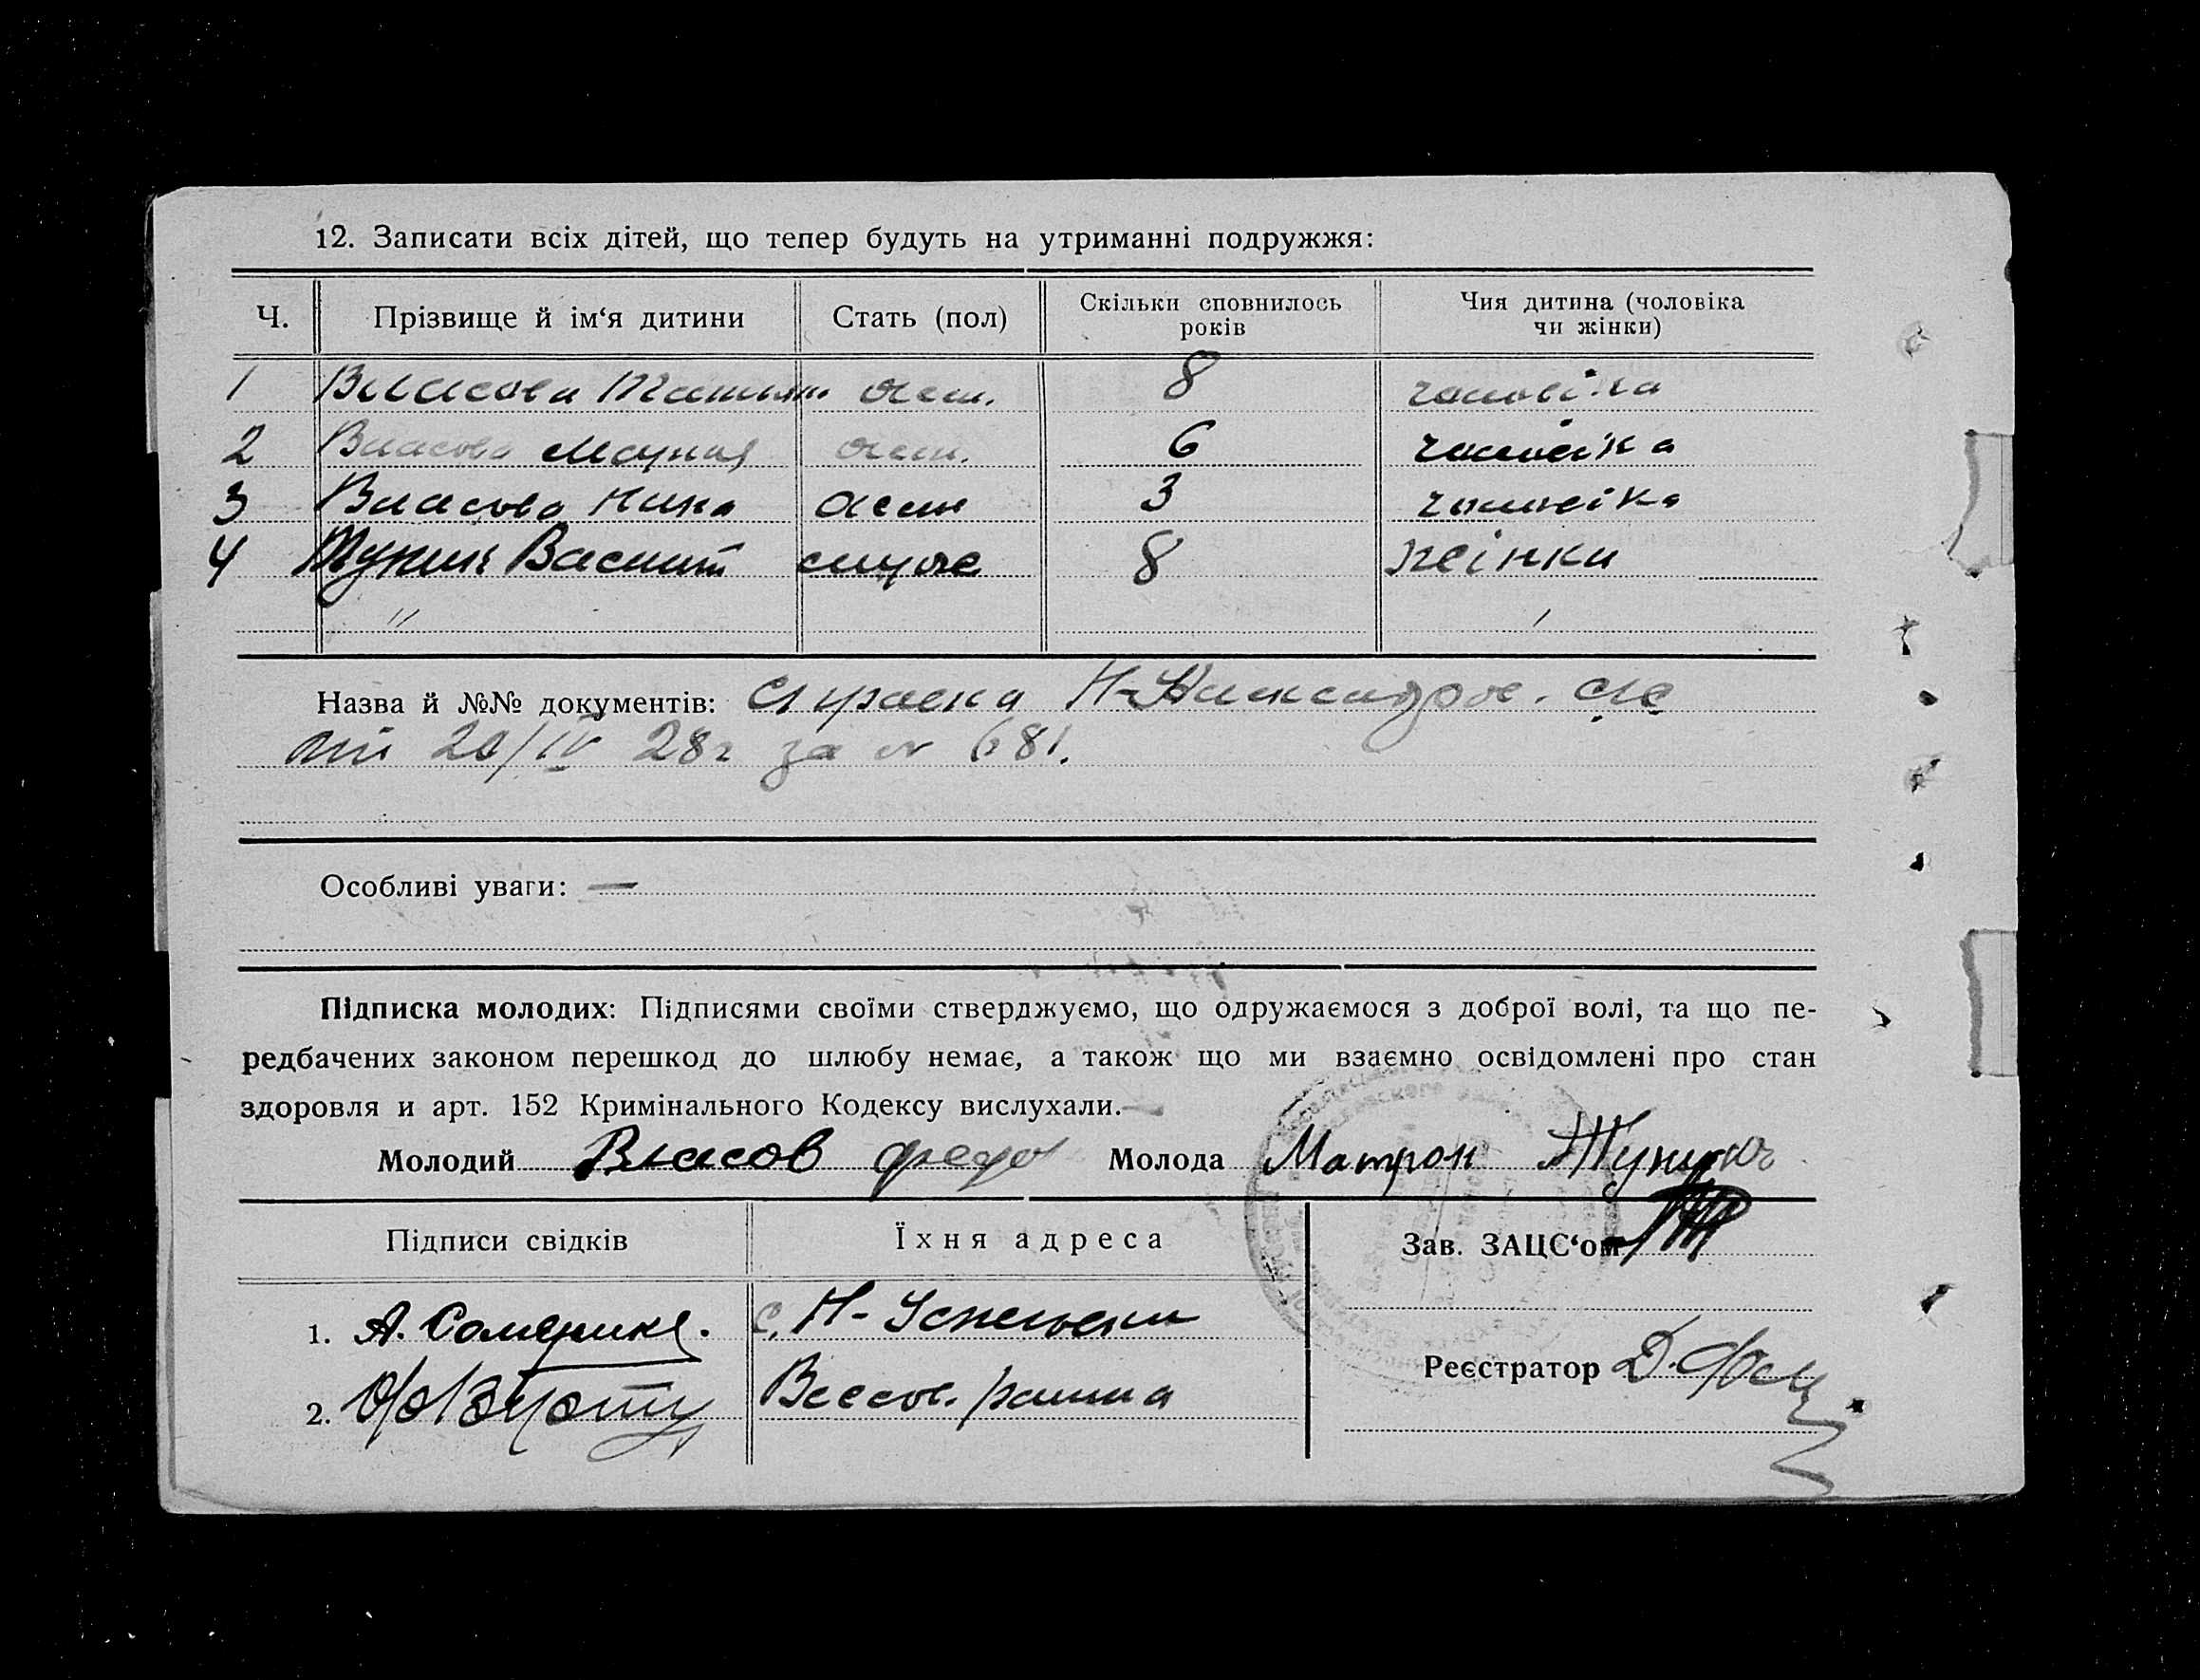 12. Записати всіх дітей, що тепер будуть на утриманні подружжя:
Ч. Прізвище й ім‘я дитини Стать (пол) Скільки сповнилось років Чия дитина (чоловіка чи жінки)
1 Власова Татьян жен. 8 чоловіка
2 Власова Мария жен. 6 чоловіка
3 Власова Нина жен 3 чоловіка
4 Василий 8 жінки
"
Назва й №№ документів: справка Н-Александров. с/с
від 20/IV 28г за № 681.
Особливі уваги: —
Підписка молодих: Підписями своїми стверджуємо, що одружаємося з доброї волі, та що пе-
редбачених законом перешкод до шлюбу немає, а також що ми взаємно освідомлені про стан
здоровля и арт. 152 Кримінального Кодексу вислухали.
Молодий Власов Федо Молода Матрон
Підписи свідків Їхня адреса Зав. ЗАЦС‘ом
1. А. с. Н-
2. Реєстратор Д.